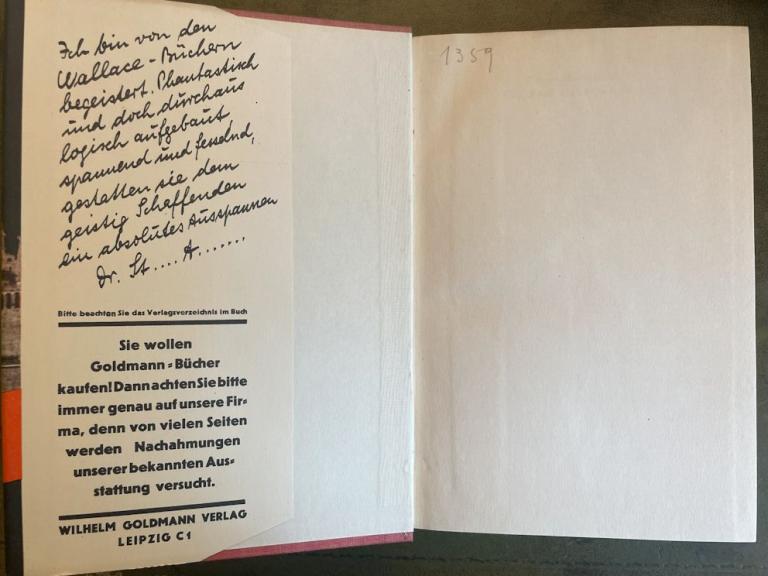 Ich bin von den
Wallace-Büchern
begeistert. Phantastisch
und doch durchaus
logisch aufgebaut
spannend und fesselnd,
gestatten sie dem
geistig Schaffenden
ein absolutes Ausspannen
Dr. St.... A.......
Bitte beachten Sie das Verlagsverzeichnis im Buch
Sie wollen
Goldmann=Bücher
kaufen! Dann achten Sie bitte
immer genau auf unsere Fir=
ma, denn von vielen Seiten
werden Nachahmungen
unserer bekannten Aus=
stattung versucht.
WILHELM GOLDMANN VERLAG
LEIPZIG C 1
1359